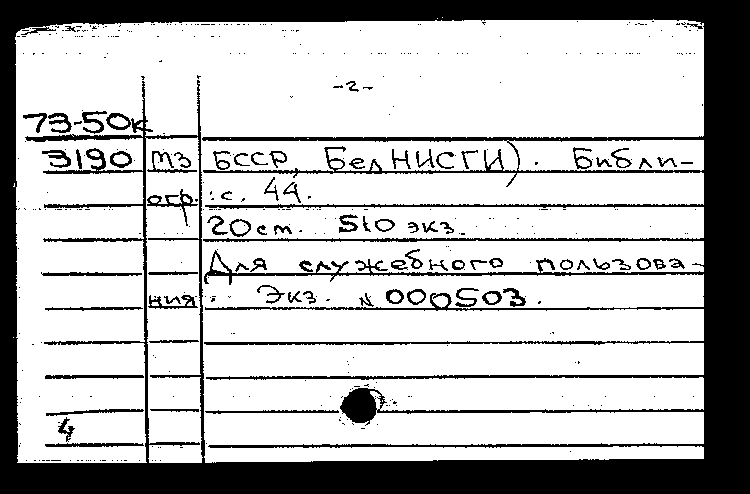 -2-
73-50к
3190 МЗ БССР, БелНИСГИ). Библи-
огр.: с. 44.
20 см. 510 экз.
Для служебного пользова-
ния. Экз. N 000503.
4